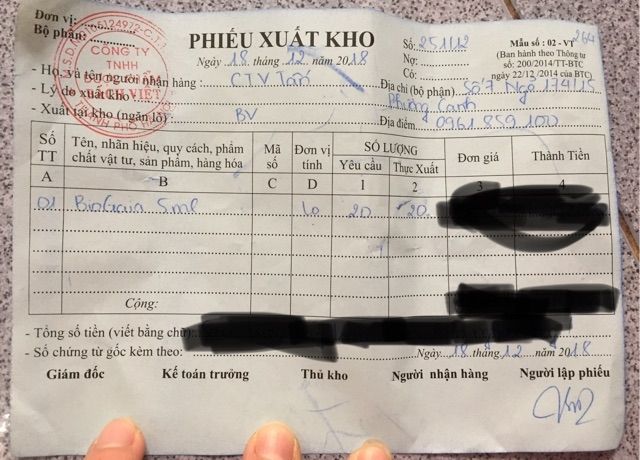 Đơn vị:
Bộ phận:
S.Đ.K.K.D: 0105124972-C.T.T
CÔNG TY
TNHH
VIỆT
THÀNH PHỐ
PHIẾU XUẤT KHO
Ngày 18 tháng 12 năm 2018
Số: 251112
Nợ:
Có:
264
Mẫu số: 02 - VT
(Ban hành theo Thông tư
số: 200/2014/TT-BTC
ngày 22/12/2014 của BTC)
- Họ và tên người nhận hàng: CTV Toán
Địa chỉ (bộ phận) Số 7 Ngõ 174/15
- Lý do xuất kho: Phùng Canh
- Xuất tại kho (ngăn lô): BV
Địa điểm: 0961 859 100
Số TT
Tên, nhãn hiệu, quy cách, phẩm chất vật tư, sản phẩm, hàng hóa
Mã số
Đơn vị tính
SỐ LƯỢNG
Yêu cầu
Thực Xuất
Đơn giá
Thành Tiền
A B C D 1 2 3 4
01 BioGaia 5ml lọ 20 20
Cộng:
- Tổng số tiền (viết bằng chữ):
- Số chứng từ gốc kèm theo:
Ngày 18 tháng 12 năm 2018
Giám đốc Kế toán trưởng Thủ kho Người nhận hàng Người lập phiếu